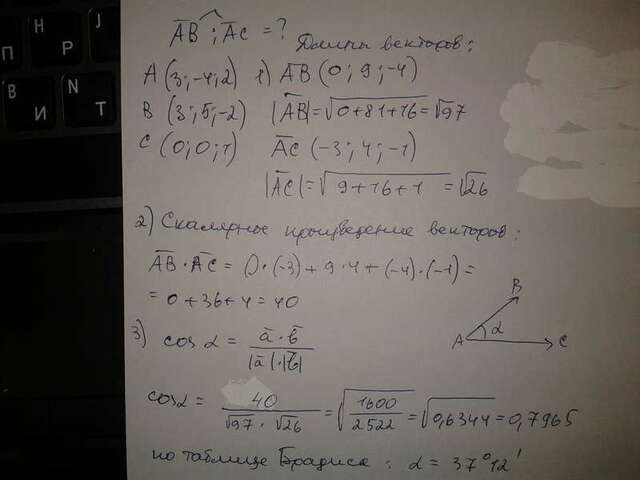 П
H
Р
J
О
B
И
N
Т
AB ; AC = ?
Длины векторов:
A (3; -4; 2) 1) AB (0; 9; -4)
B (3; 5; -2) |AB| = √0+81+16 = √97
C (0; 0; 1) AC (-3; 4; -1)
|AC| = √9+16+1 = √26
2) Скалярное произведение векторов:
AB · AC = 0·(-3) + 9·4 + (-4)·(-1) =
= 0+36+4 = 40
B
A α C
3) cos α = a · b / |a|·|b|
cos α = 40 / √97 · √26 = √1600/2522 = √0,6344 = 0,7965
по таблице Брадиса: α = 37°12'